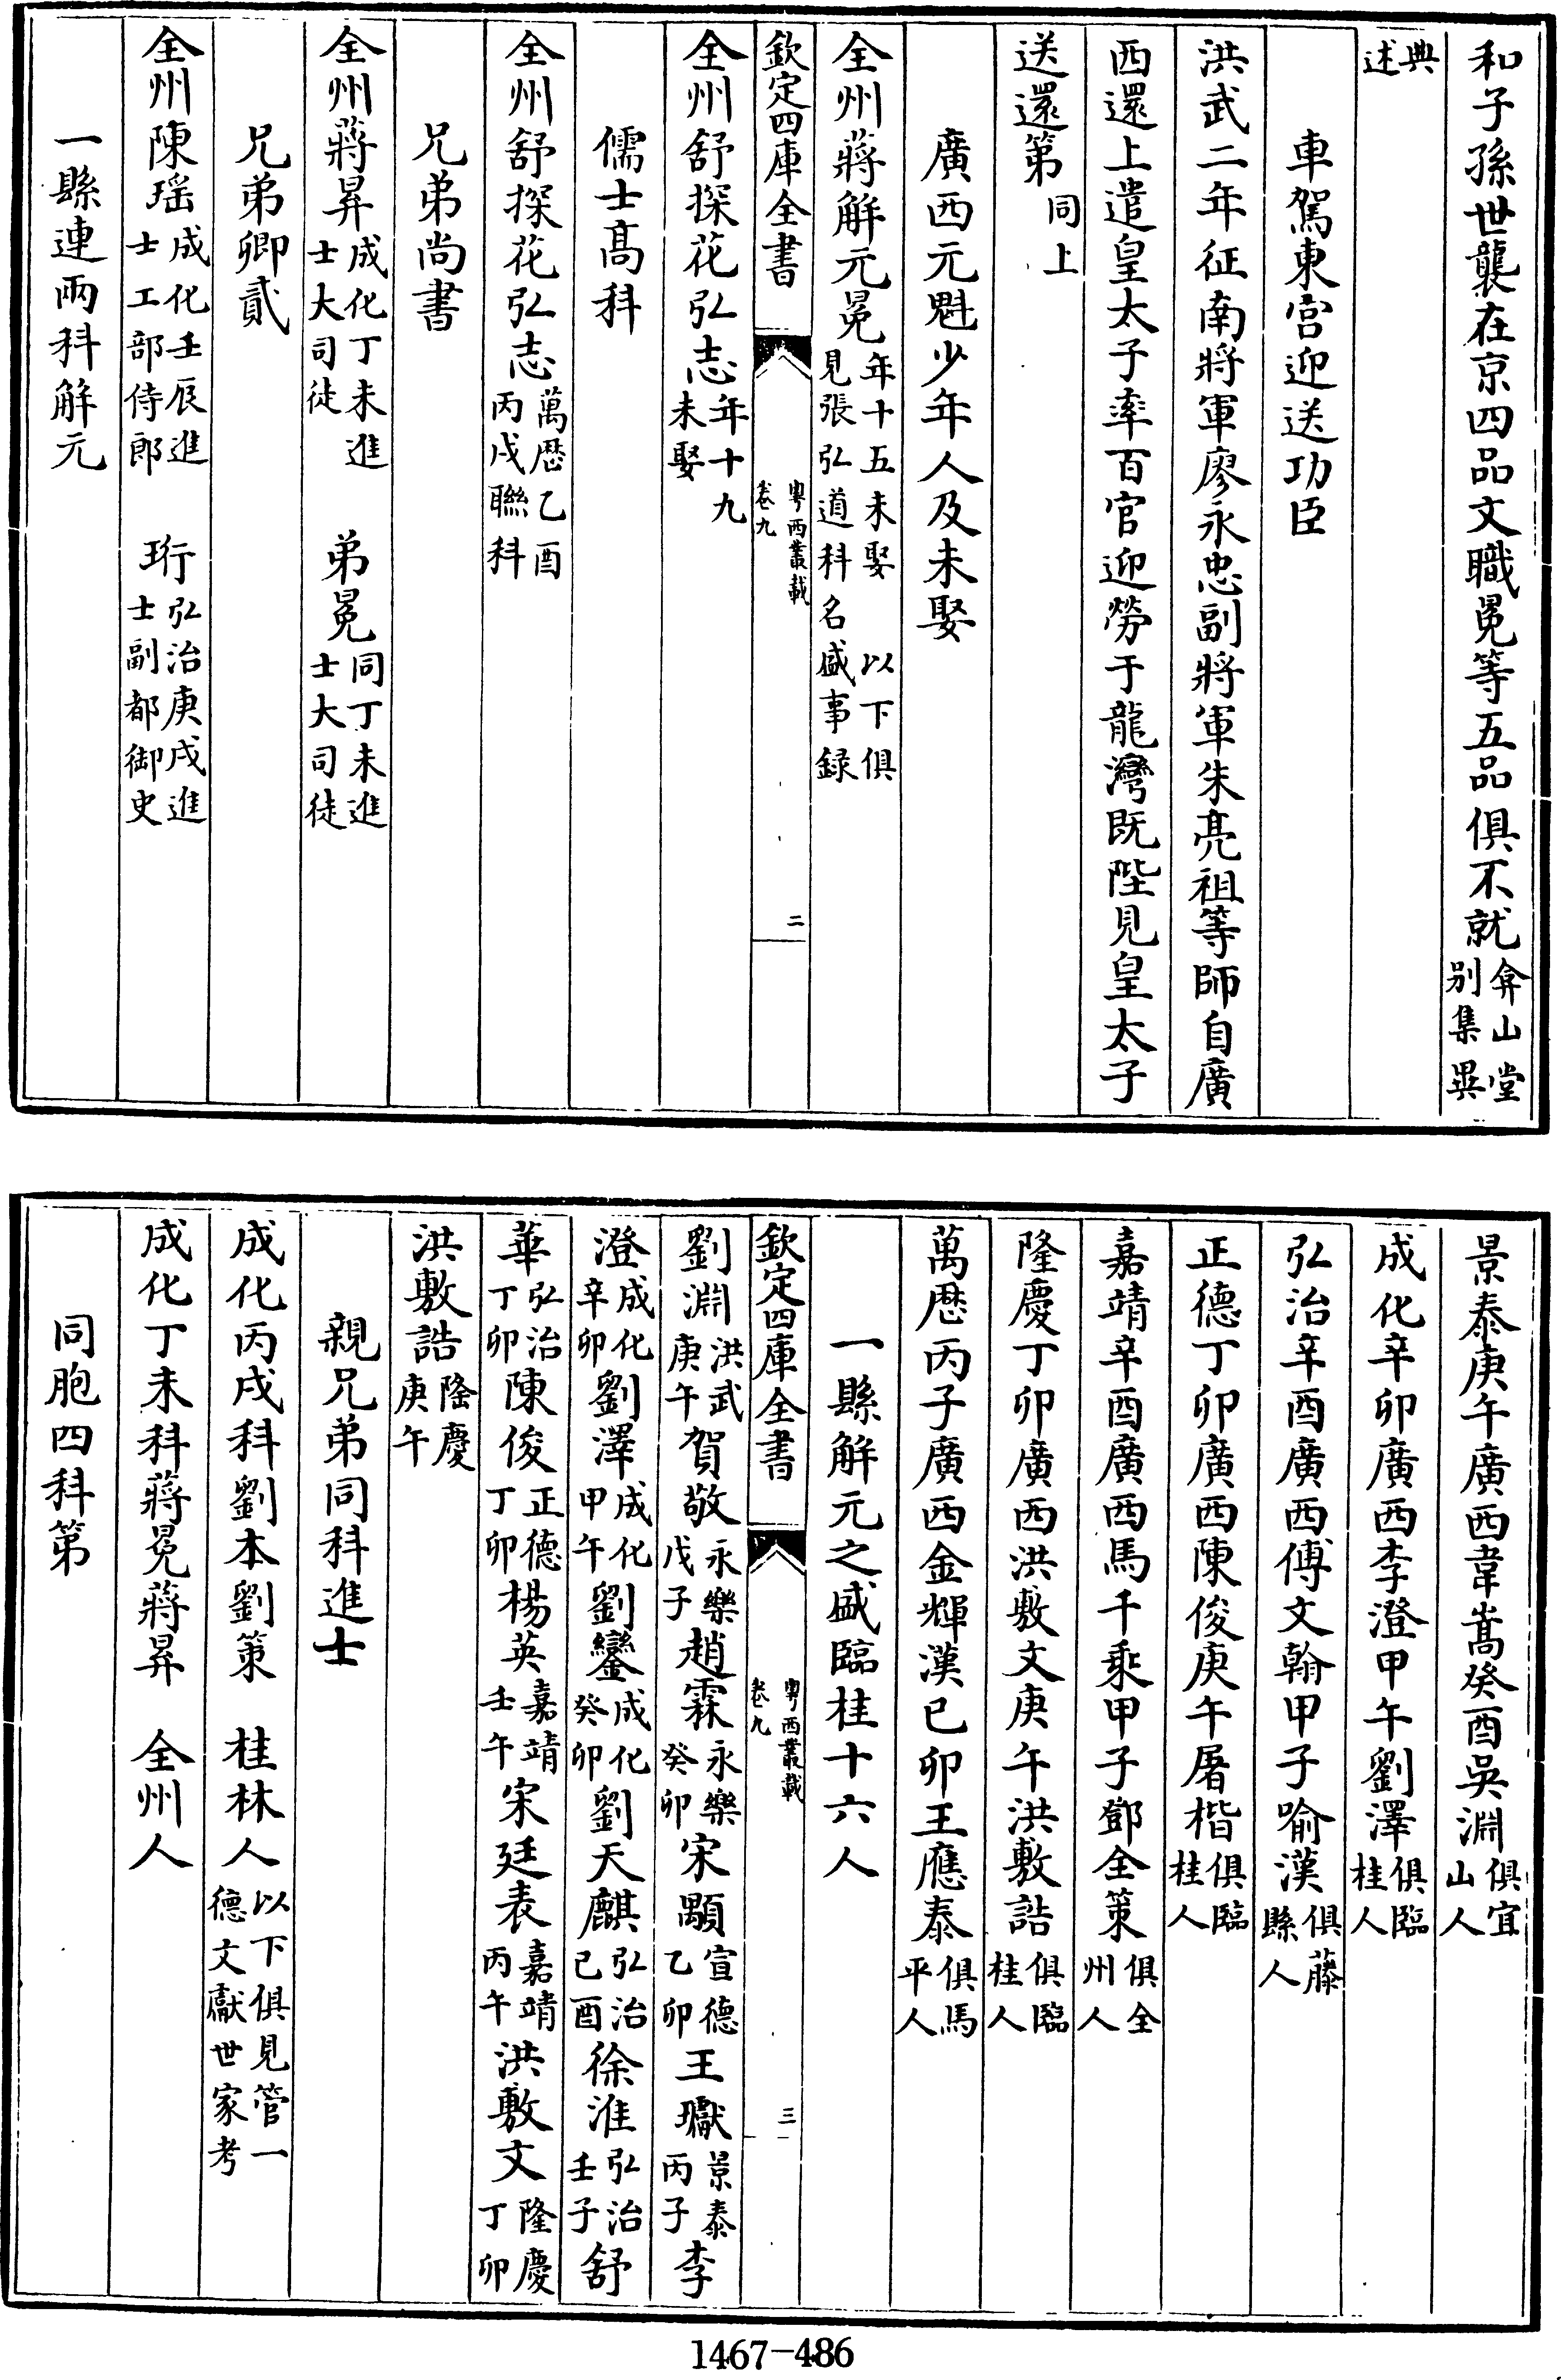 和子孫世襲在京四品文職冕等五品俱不就弇山堂别集異
典述
車駕東宫迎送功臣
洪武二年征南將軍廖永忠副將軍朱亮祖等師自廣
西還上遣皇太子率百官迎勞于龍灣既陛見皇太子
送還第同上
廣西元魁少年人及未娶
全州蔣解元冕年十五未娶 以下俱見張弘道科名盛事録
欽定四庫全書 粤西叢載 卷九 二
全州舒探花弘志年十九未娶
儒士髙科
全州舒探花弘志萬歴乙酉丙戌聯科
兄弟尚書
全州蔣昇成化丁未進士大司徒 弟冕同丁未進士大司徒
兄弟卿貳
全州陳瑶成化壬辰進士工部侍郎 珩弘治庚戌進士副都御史
一縣連兩科解元
景泰庚午廣西韋嵩癸酉吳淵俱宜山人
成化辛卯廣西李澄甲午劉澤俱臨桂人
弘治辛酉廣西傅文翰甲子喻漢俱藤縣人
正德丁卯廣西陳俊庚午屠楷俱臨桂人
嘉靖辛酉廣西馬千乘甲子鄧全策俱全州人
隆慶丁卯廣西洪敷文庚午洪敷誥俱臨桂人
萬歴丙子廣西金輝漢已卯王應泰俱馬平人
一縣解元之盛臨桂十六人
欽定四庫全書 粤西叢載 卷九 三
劉淵洪武庚午賀敬永樂戊子趙霖永樂癸卯宋顒宣德乙卯王瓛景泰丙子李
澄成化辛卯劉澤成化甲午劉鑾成化癸卯劉天麒弘治已酉徐淮弘治壬子舒
華弘治丁卯陳俊正德丁卯楊英嘉靖壬午宋廷表嘉靖丙午洪敷文隆慶丁卯
洪敷誥隆慶庚午
親兄弟同科進士
成化丙戌科劉本劉策 桂林人以下俱見管一德文獻世家考
成化丁未科蔣冕蔣昇 全州人
同胞四科第
1467-486